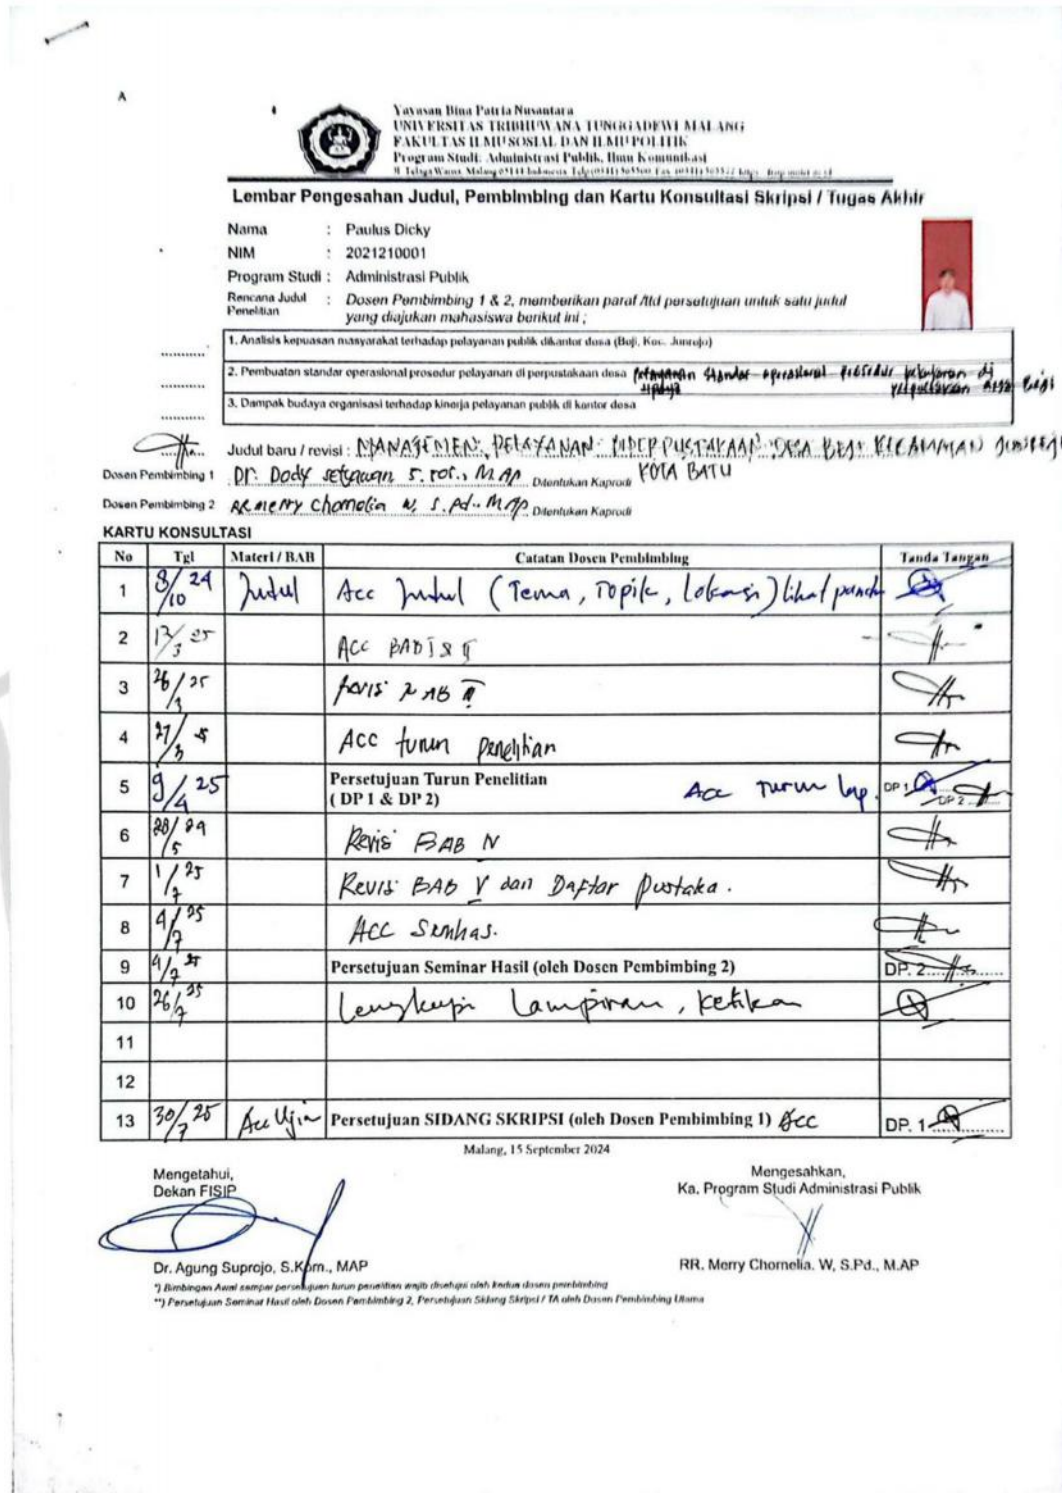 A
Yayasan Bina Patria Nusantara
UNIVERSITAS TRIBHUWANA TUNGGADEWI MALANG
FAKULTAS ILMU SOSIAL DAN ILMU POLITIK
Program Studi: Administrasi Publik, Ilmu Komunikasi
Lembar Pengesahan Judul, Pembimbing dan Kartu Konsultasi Skripsi / Tugas Akhir
Nama : Paulus Dicky
NIM : 2021210001
Program Studi : Administrasi Publik
Rencana Judul Penelitian : Dosen Pembimbing 1 & 2, memberikan paraf /ttd persetujuan untuk satu judul
yang diajukan mahasiswa berikut ini ;
1. Analisis kepuasan masyarakat terhadap pelayanan publik dikantor desa (Beji, Kec. Junrejo)
2. Pembuatan standar operasional prosedur pelayanan di perpustakaan desa
3. Dampak budaya organisasi terhadap kinerja pelayanan publik di kantor desa
Judul baru / revisi : MANAJEMEN PELAYANAN DIPERPUSTAKAAN DESA BEJI KECAMATAN JUNREJO
KOTA BATU
Dosen Pembimbing 1 Dr. Dody Setyawan S. Sos., M. AP Ditentukan Kaprodi
Dosen Pembimbing 2 RR Merry Chornelia W, S.Pd., M.AP Ditentukan Kaprodi
KARTU KONSULTASI
No Tgl Materi / BAB Catatan Dosen Pembimbing Tanda Tangan
1 8/10 24 Judul Acc Judul (Tema, Topik, Lokasi) lihat
2 12/3 25 ACC BAB I &
3 26/3 25 Revisi BAB
4 27/3 ACC turun penelitian
5 9/4 25 Persetujuan Turun Penelitian Acc Turun Lap. DP 1
( DP 1 & DP 2) DP 2
6 28/5 Revisi BAB IV
7 1/7 25 Revisi BAB V dan Daftar Pustaka.
8 4/7 25 ACC Semhas.
9 4/7 25 Persetujuan Seminar Hasil (oleh Dosen Pembimbing 2) DP. 2
10 26/7 25 Lengkapi Lampiran, ketikan
11
12
13 30/7 25 Acc Ujian Persetujuan SIDANG SKRIPSI (oleh Dosen Pembimbing 1) Acc DP. 1
Malang, 15 September 2024
Mengetahui,
Dekan FISIP
Mengesahkan,
Ka. Program Studi Administrasi Publik
Dr. Agung Suprojo, S.Kom., MAP
RR. Merry Chornelia. W, S.Pd., M.AP
*) Bimbingan Awal sampai persetujuan turun penelitian wajib disetujui oleh kedua dosen pembimbing
**) Persetujuan Seminar Hasil oleh Dosen Pembimbing 2, Persetujuan Sidang Skripsi / TA oleh Dosen Pembimbing Utama